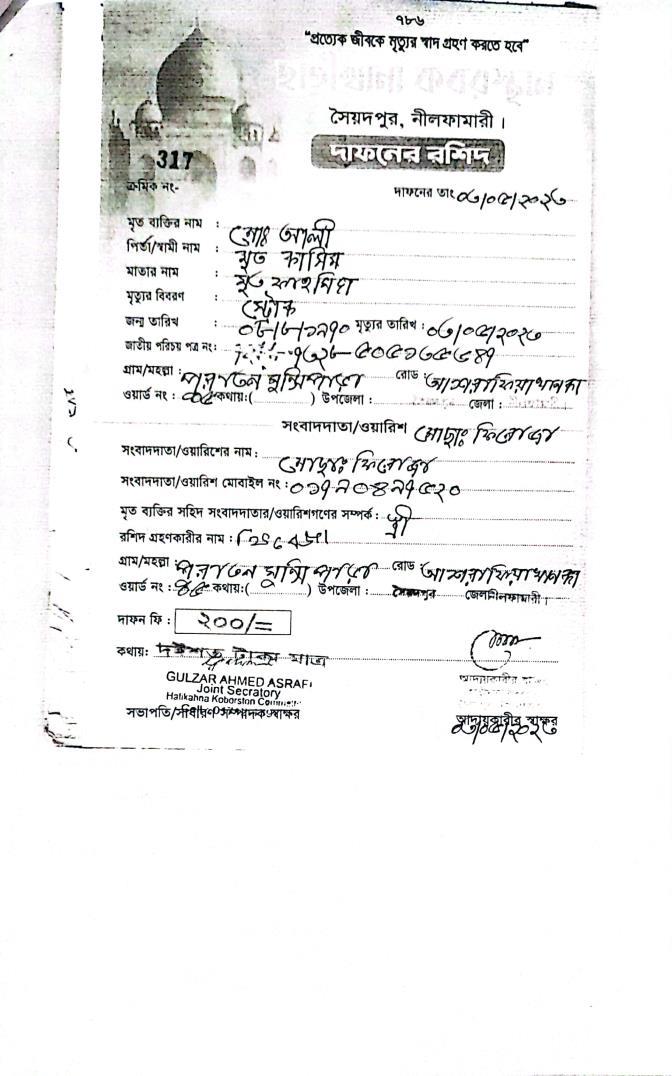 ৭৮৬
"প্রত্যেক জীবকে মৃত্যুর স্বাদ গ্রহণ করতে হবে"
সৈয়দপুর, নীলফামারী ।
দাফনের রশিদ
317
ক্রমিক নং-
দাফনের তাং ০৩/০৫/২০২৩
মৃত ব্যক্তির নাম : মোঃ আলী
পিতা/স্বামী নাম : মৃত কাসিম
মাতার নাম : মৃত
মৃত্যুর বিবরণ : স্ট্রোক
জন্ম তারিখ : ০৮/৮/১৯৭০ মৃত্যুর তারিখ : ০৩/০৫/২০২৩
জাতীয় পরিচয় পত্র নং:
গ্রাম/মহল্লা : পুরাতন মুন্সিপাড়া রোড : আশরাফিয়া খানকা
ওয়ার্ড নং : ০৫ কথায়:( ) উপজেলা : জেলা :
সংবাদদাতা/ওয়ারিশ মোছাঃ ফিরোজা
সংবাদদাতা/ওয়ারিশের নাম: মোছাঃ ফিরোজা
সংবাদদাতা/ওয়ারিশ মোবাইল নং : ০১৭২০৪২৭৫২০
মৃত ব্যক্তির সহিদ সংবাদদাতার/ওয়ারিশগণের সম্পর্ক : স্ত্রী
রশিদ গ্রহণকারীর নাম :
গ্রাম/মহল্লা : পুরাতন মুন্সিপাড়া রোড আশরাফিয়া খানকা
ওয়ার্ড নং : ০৫ কথায়:( ) উপজেলা : সৈয়দপুর জেলানীলফামারী ।
দাফন ফি : ২০০/=
কথায়: দুইশত টাকা মাত্র
GULZAR AHMED ASRAFI
Joint Secratory
Hatikahna Koborston
সভাপতি/সাধারণ সম্পাদক স্বাক্ষর
আদায়কারীর স্বাক্ষর
০৩/০৫/২০২৩